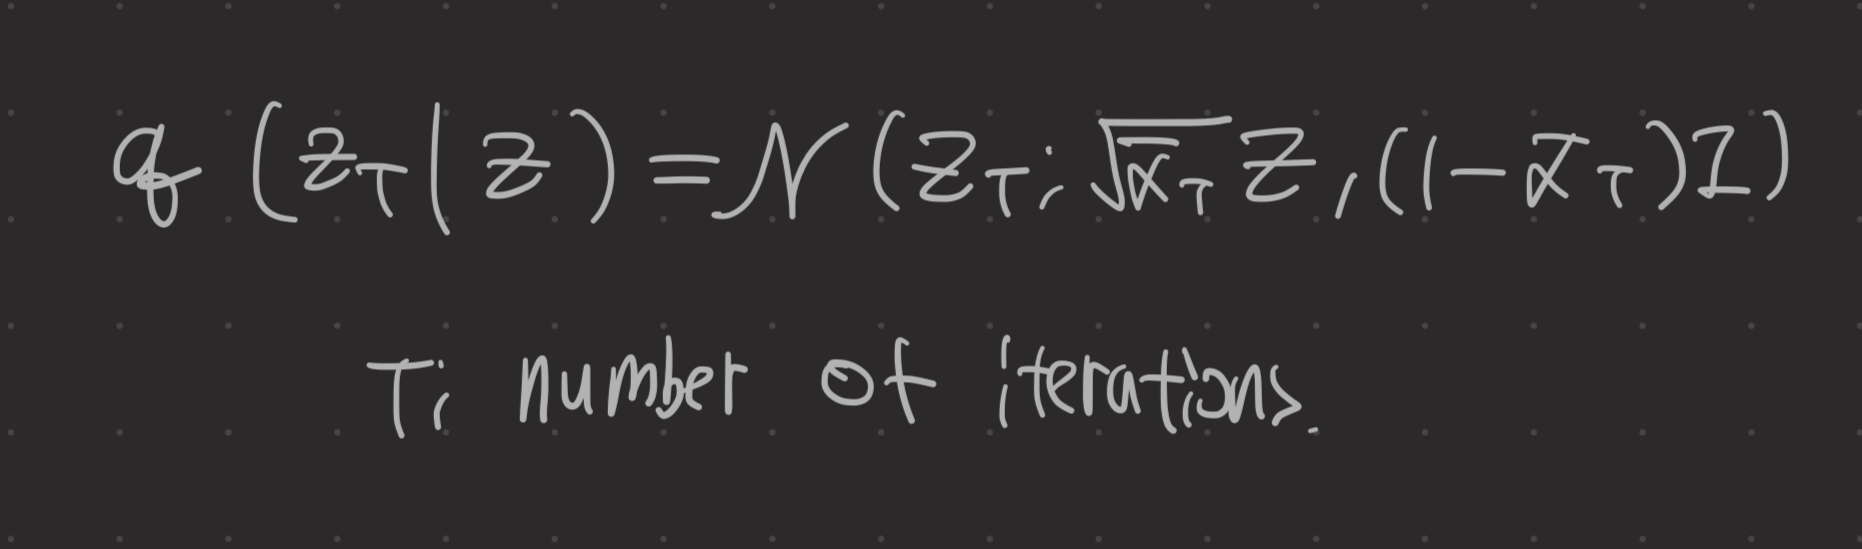 q(z_T|z) = N(z_T; √ᾱ_T z, (1-ᾱ_T)I)
T; number of iterations.